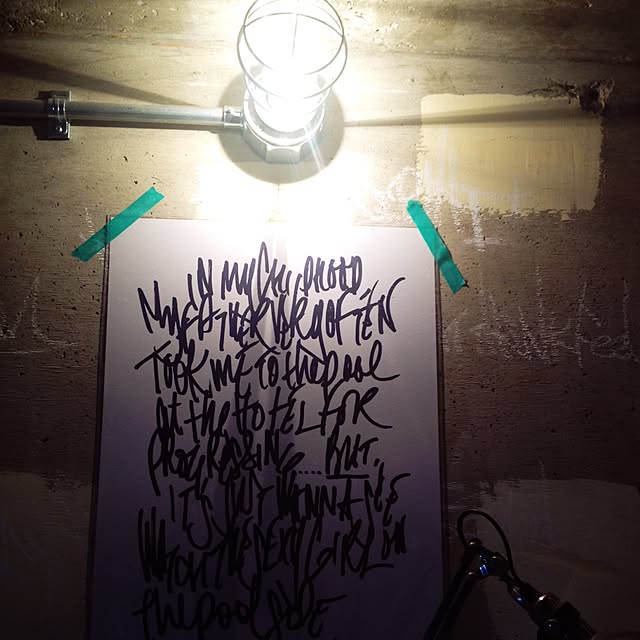 IN MY CHILDHOOD,
MY FATHER VERY OFTEN
TOOK ME TO the pool
At the HOTEL FOR
PROGRESSING.... BUT,
IT'S JUST WANNA
WATCH THE SEXY GIRL ON
the pool SIDE